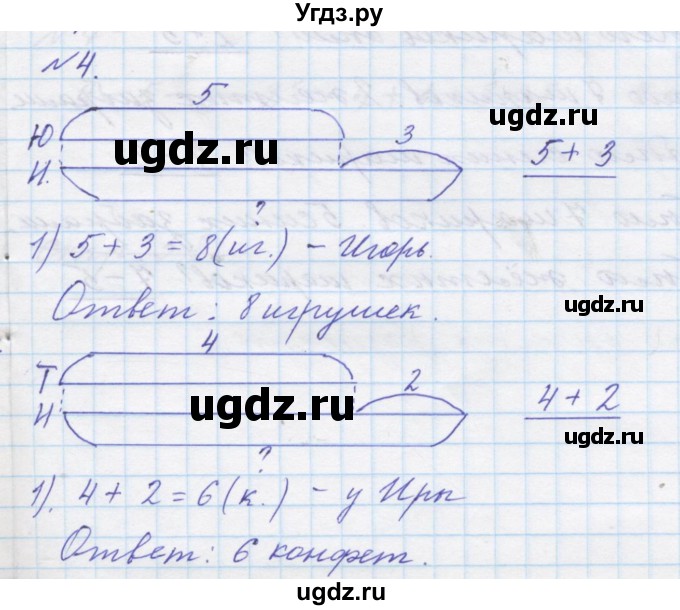 Угдз.ру
№4.
5
Ю
И.
3
ugdz.ru
ugdz.ru
5 + 3
?
1) 5 + 3 = 8 (иг.) – Игорь.
ugdz.ru
Ответ: 8 игрушек.
ugdz.ru
4
Т
И
2
ugdz.ru
4 + 2
ugdz.ru
?
1). 4 + 2 = 6 (к.) – у Иры
Ответ: 6 конфет.
ugdz.ru
ugdz.ru